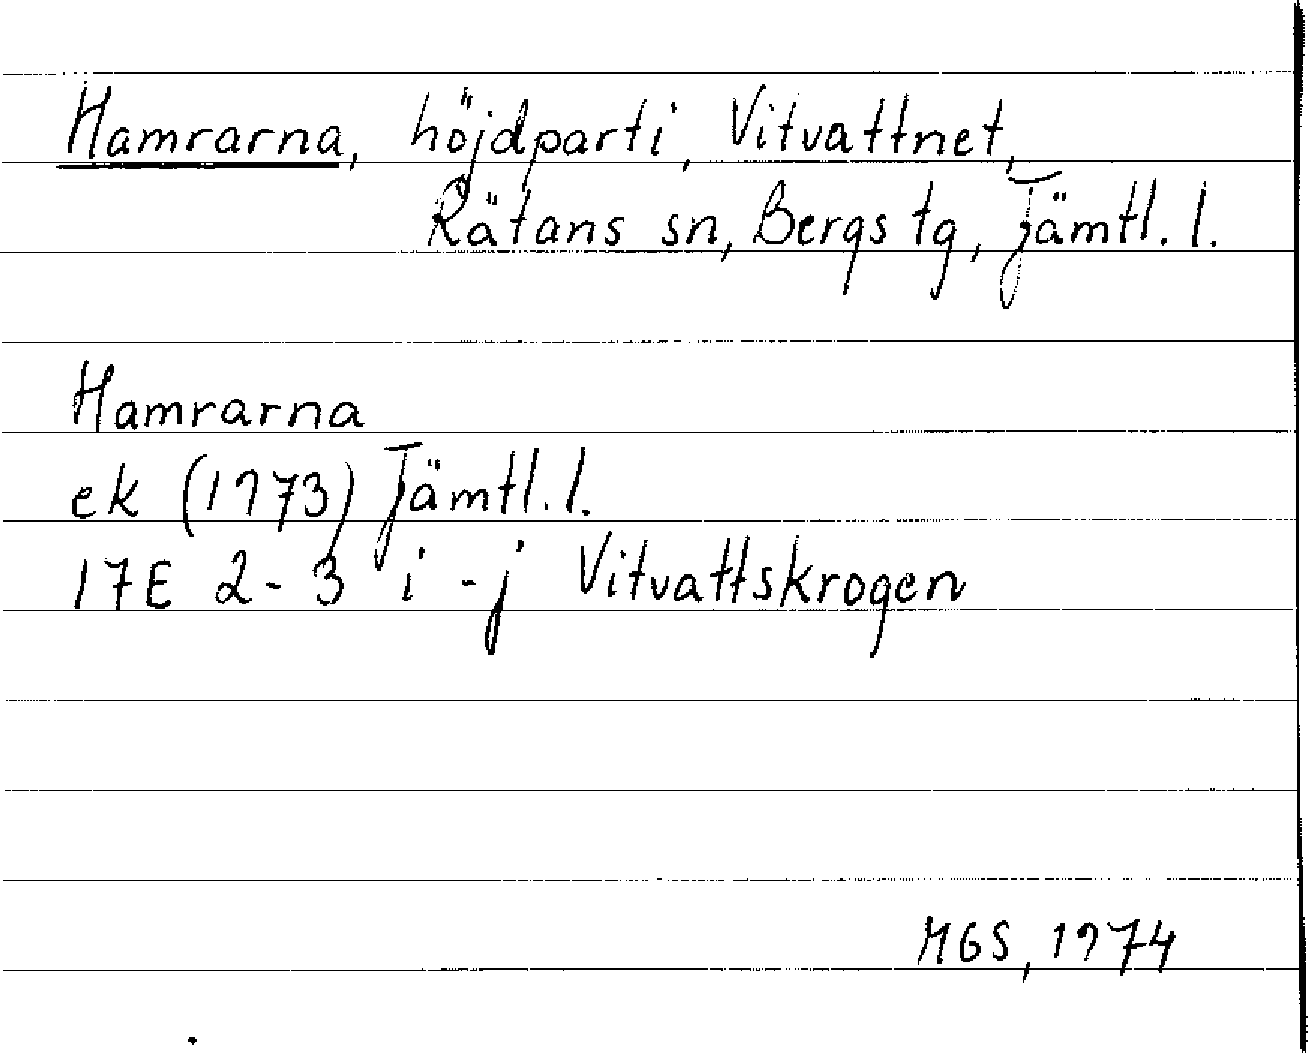 Hamrarna, höjdparti, Vitvattnet,
Rätans sn, Bergs tg, Jämtl. l.
Hamrarna
ek (1973) Jämtl. l.
17E 2-3 i-j Vitvattskrogen
MGS, 1974